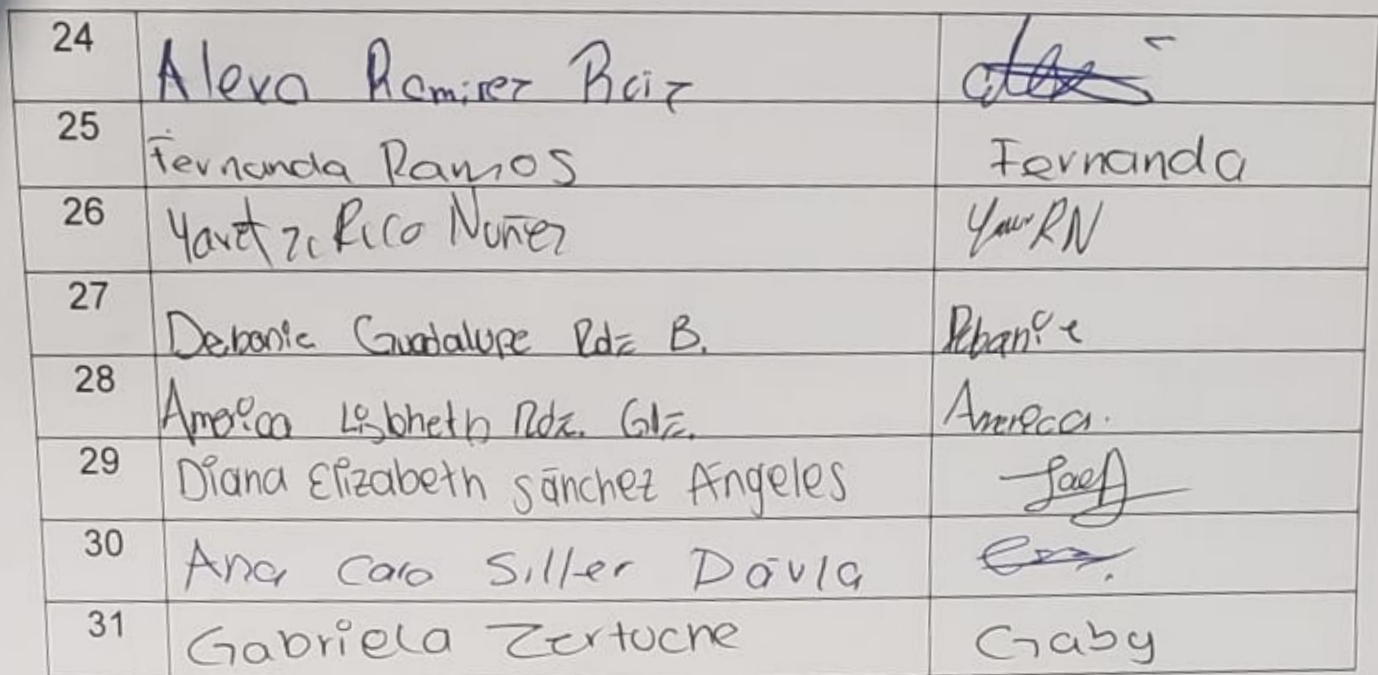 24 Alexa Ramirez Ruiz
25 Fernanda Ramos Fernanda
26 Yaretzi Rico Nuñez RN
27 Debanie Guadalupe Rdz B. Debanie
28 America Lisbheth Rdz. Glz. America.
29 Diana Elizabeth Sánchez Ángeles
30 Ana Caro Siller Dávla
31 Gabriela Zertuche Gaby